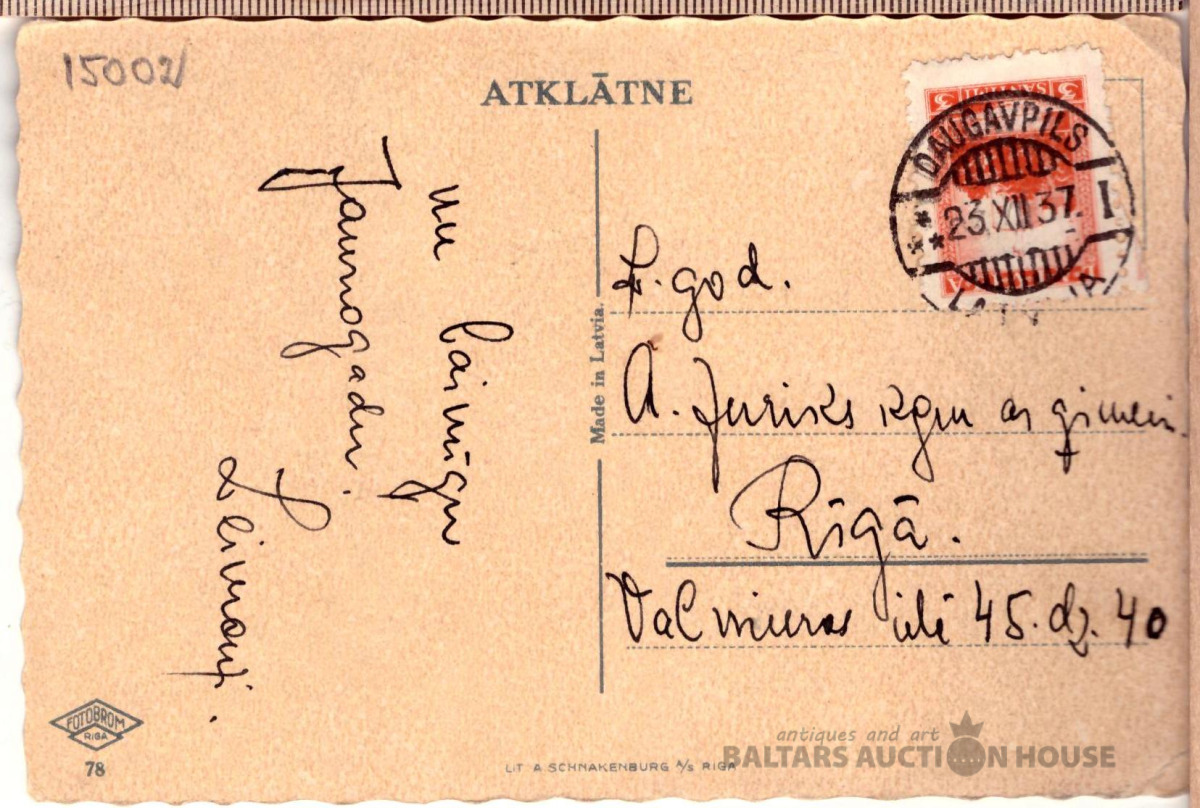 15002
ATKLĀTNE
3 SANTIMI 3
DAUGAVPILS
23.XII.37. I
un laimīgu
Jaunogadu.
Made in Latvia.
god.
A. kgm ar ģimeni.
Rīgā.
Valmieras ielā 45. dz. 40
FOTOBROM
RIGA
78
LIT A SCHNAKENBURG A/S RIGA
antiques and art
BALTARS AUCTION HOUSE